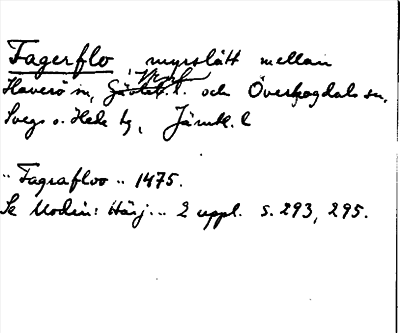 Fagerflo, myrslått mellan
Haverö sn, Medelp. l. och Överhogdals sn,
Svegs o. Hede tg, Jämtl. l
" Fagrafloo " 1475.
Se Modin: Härj... 2 uppl. s. 293, 295.